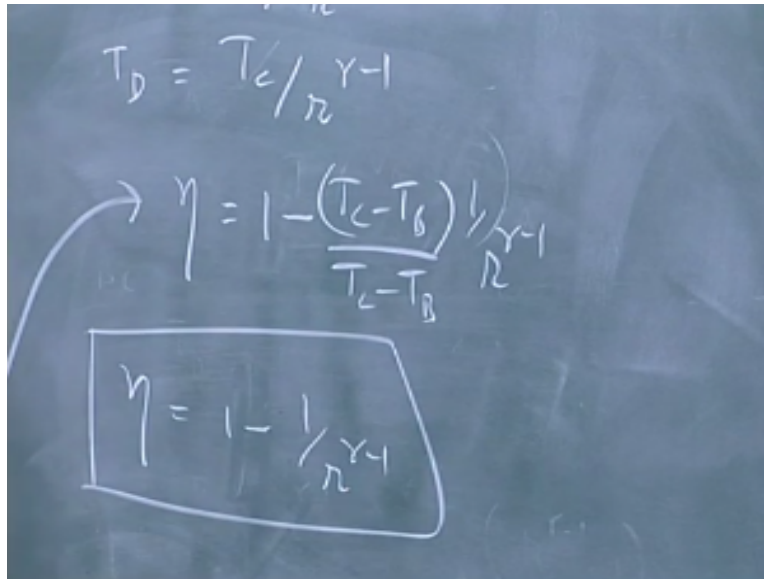 T_D = T_C / r^{γ-1}
η = 1 - (T_C - T_B) / (T_C - T_B) 1/r^{γ-1}
η = 1 - 1/r^{γ-1}